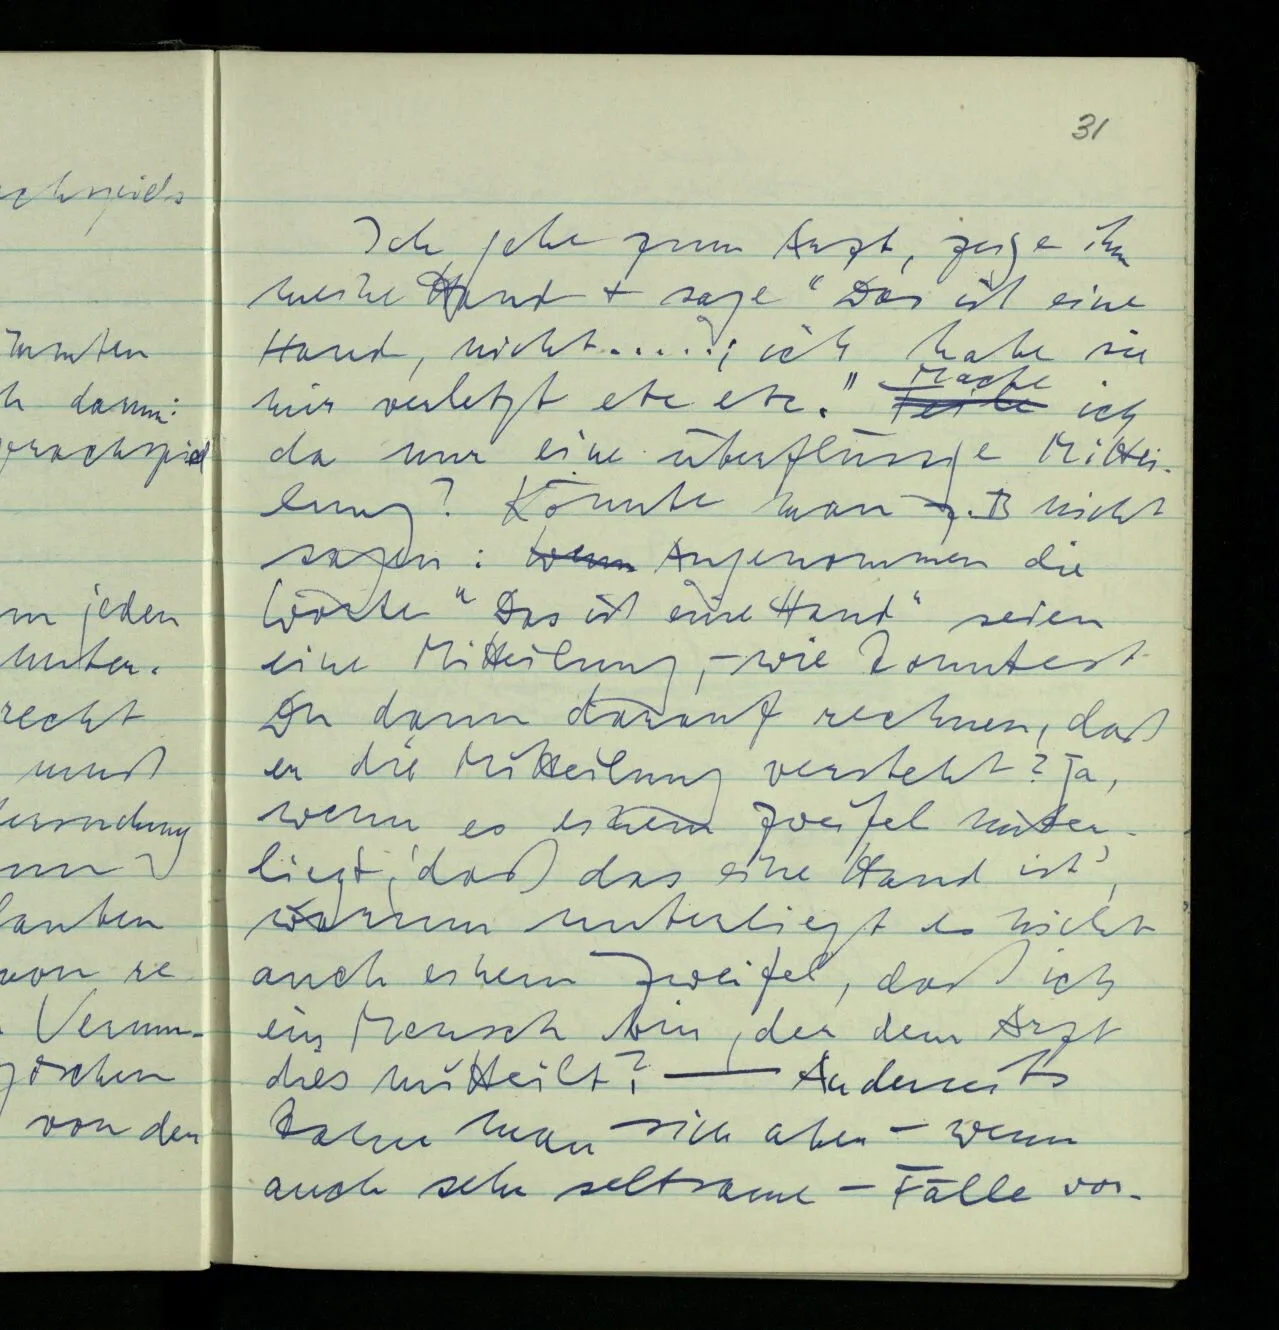 31
achspiels
Ich gehe zum Arzt, zeige ihm
meine Hand + sage "Das ist eine
Hand, nicht.....; ich habe sie
mir verletzt etc etc." Mache
Teile ich
da nur eine überflüssige Mittei-
lung? Könnte man z.B nicht
sagen: wenn Angenommen die
Worte "Das ist eine Hand" seien
eine Mitteilung, – wie konntest
Du dann darauf rechnen, daß
er die Mitteilung versteht? Ja,
wenn es einem Zweifel unter-
liegt, 'daß das eine Hand ist',
warum unterliegt es nicht
auch einem Zweifel, daß ich
ein Mensch bin, der dem Arzt
dies mitteilt? — Anderseits
kann man sich aber – wenn
auch sehr seltsame – Fälle vor-
darum:
prachspiel
jeden
unter.
recht
muß
lauben
von re
Vernun-
von den